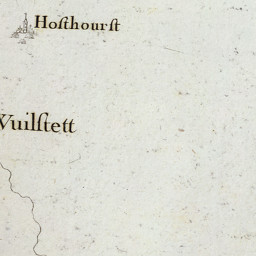 Hoſthourſt
Wuilſtett